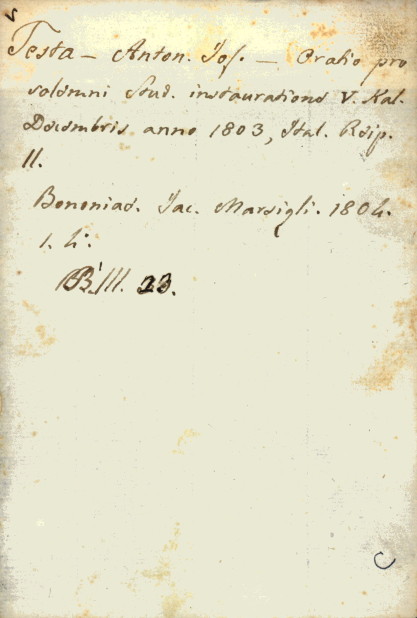 v
Testa — Anton. Jos. — Oratio pro
solemni Stud. instauratione V. Kal.
Decembris anno 1803, Ital. Reip.
II.
Bononiae. Jac. Marsigli. 1804.
1. 4°.
B. III. 23.
C